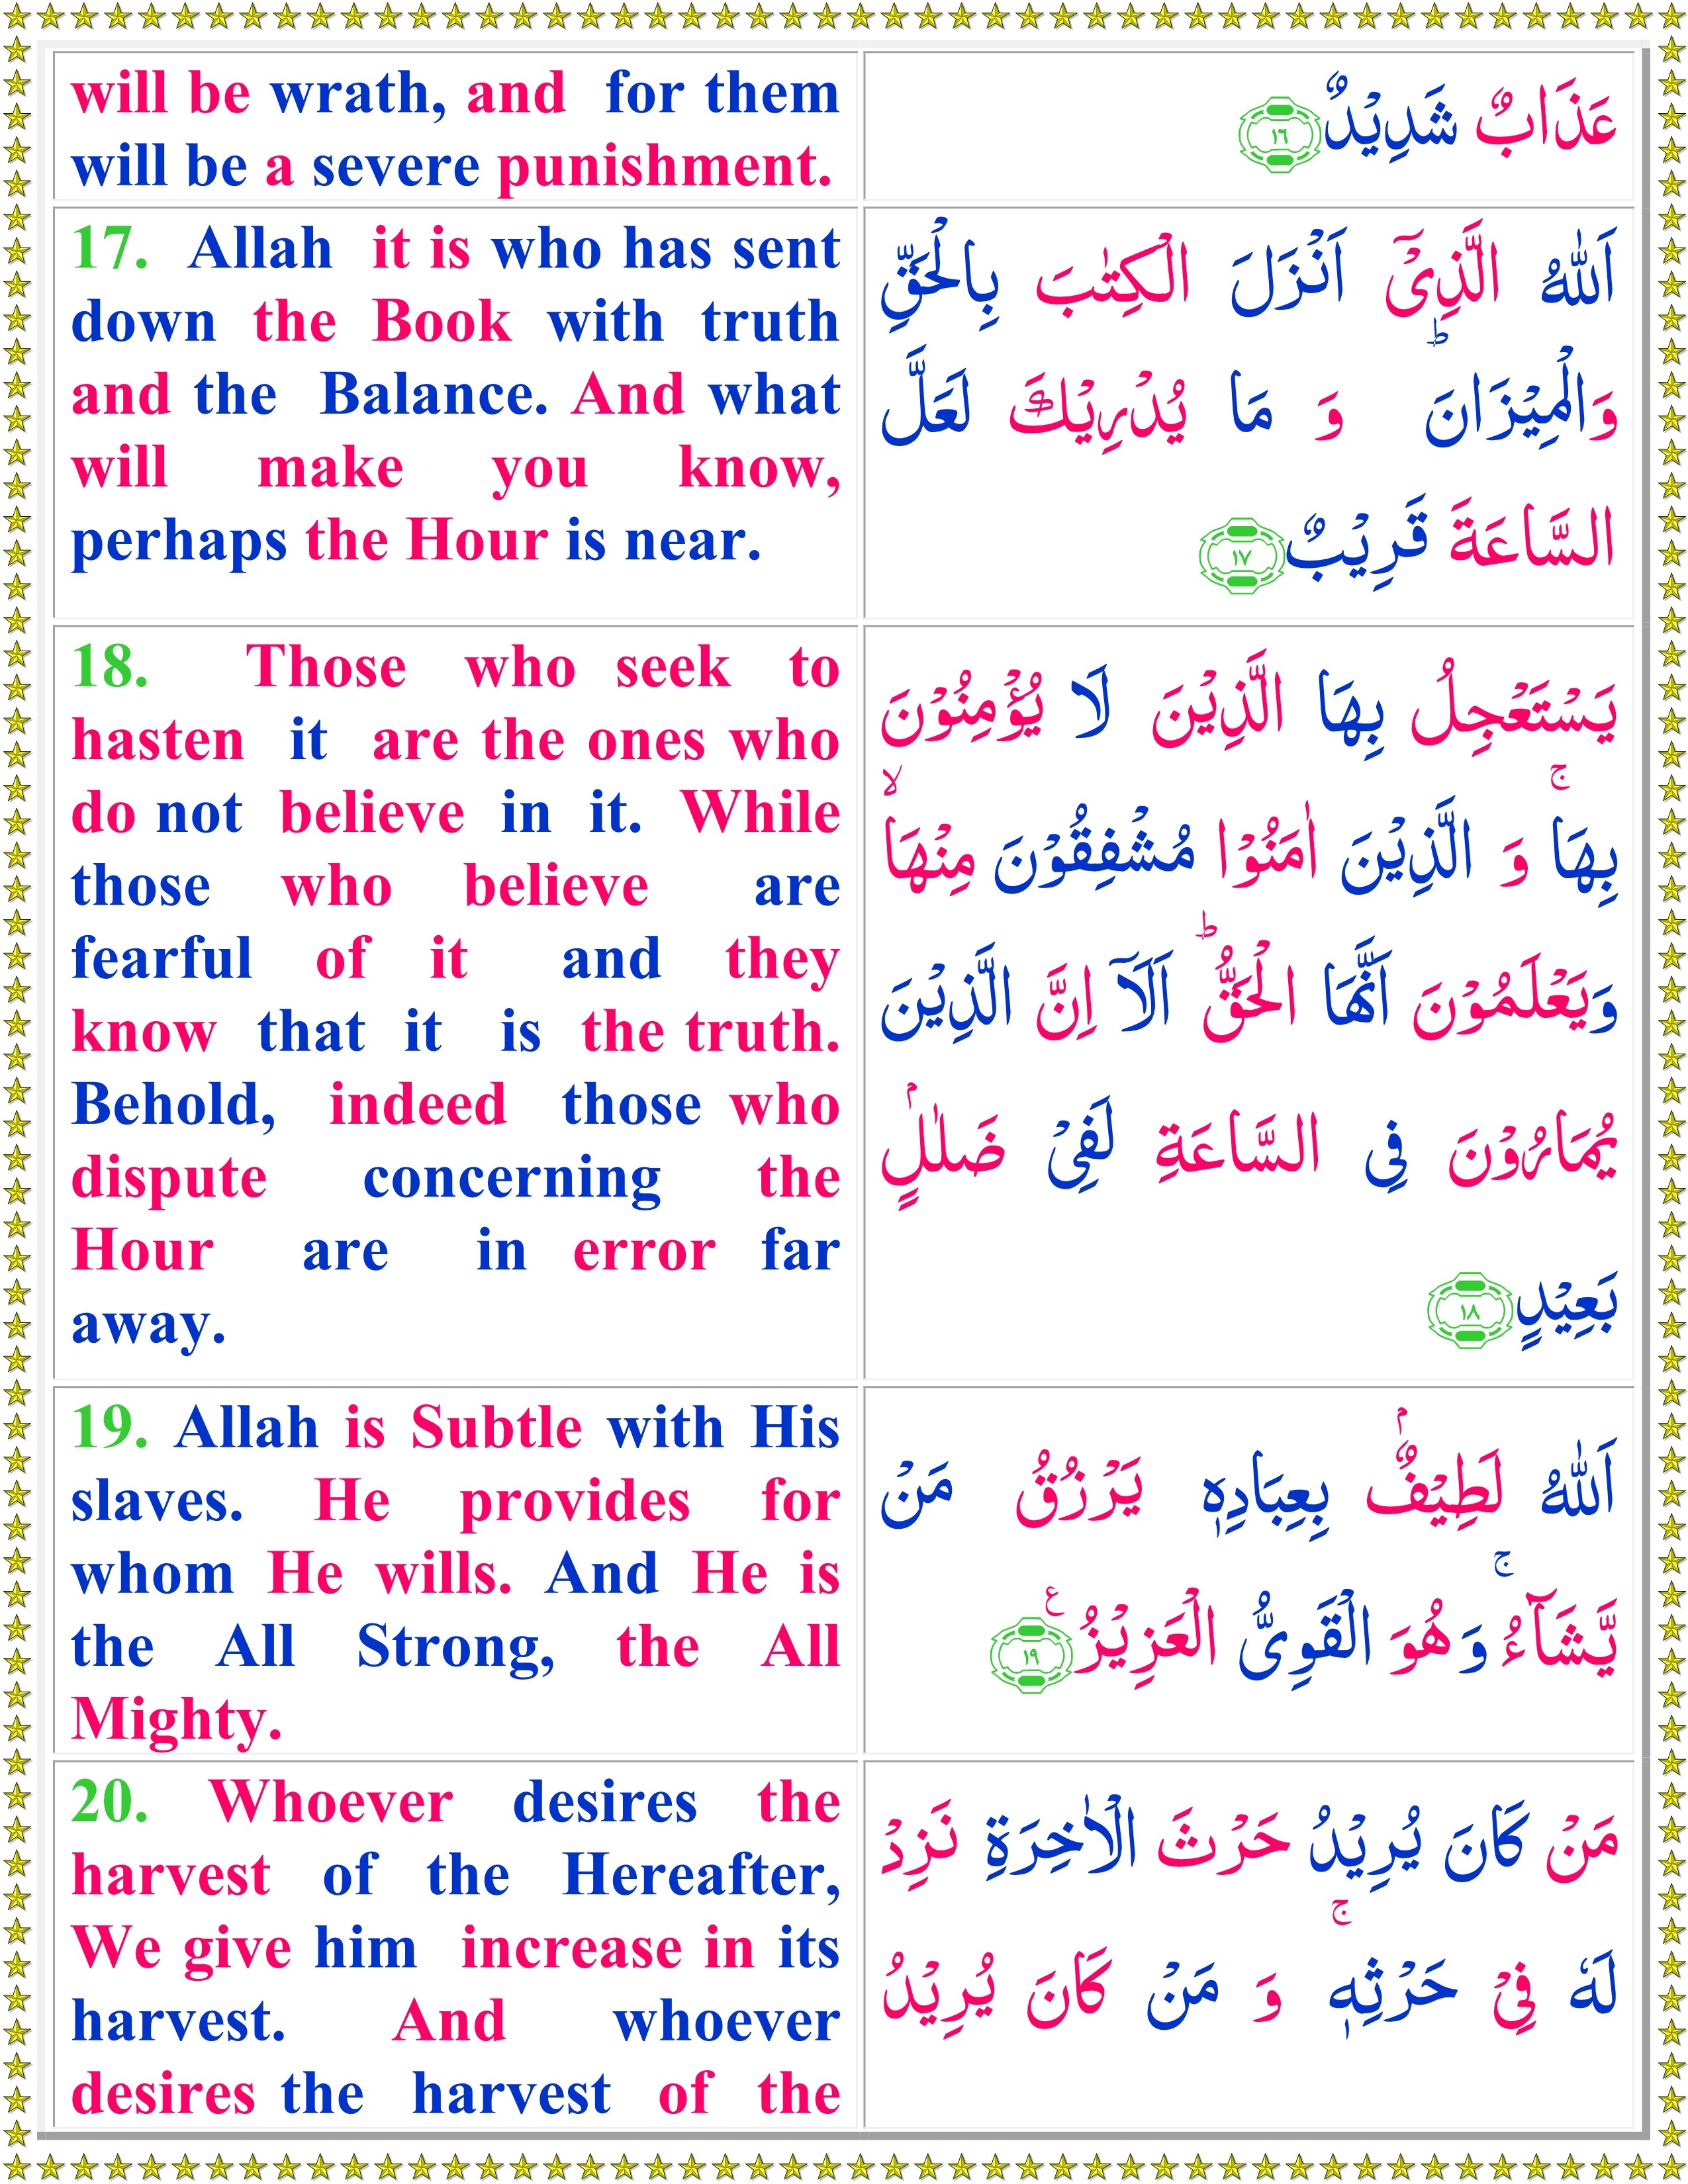 will be wrath, and for them
will be a severe punishment.
عَذَابٌ شَدِيْدٌ ۱۶
17. Allah it is who has sent
down the Book with truth
and the Balance. And what
will make you know,
perhaps the Hour is near.
اَللّٰهُ الَّذِىْۤ اَنْزَلَ الْكِتٰبَ بِالْحَقِّ
وَالْمِيْزَانَؕ وَ مَا يُدْرِيْكَ لَعَلَّ
السَّاعَةَ قَرِيْبٌ ۱۷
18. Those who seek to
hasten it are the ones who
do not believe in it. While
those who believe are
fearful of it and they
know that it is the truth.
Behold, indeed those who
dispute concerning the
Hour are in error far
away.
يَسْتَعْجِلُ بِهَا الَّذِيْنَ لَا يُؤْمِنُوْنَ
بِهَاۚ وَ الَّذِيْنَ اٰمَنُوْا مُشْفِقُوْنَ مِنْهَاۙ
وَيَعْلَمُوْنَ اَنَّهَا الْحَقُّؕ اَلَاۤ اِنَّ الَّذِيْنَ
يُمَارُوْنَ فِى السَّاعَةِ لَفِىْ ضَلٰلٍۢ
بَعِيْدٍ ۱۸
19. Allah is Subtle with His
slaves. He provides for
whom He wills. And He is
the All Strong, the All
Mighty.
اَللّٰهُ لَطِيْفٌۢ بِعِبَادِهٖ يَرْزُقُ مَنْ
يَّشَآءُۚ وَهُوَ الْقَوِىُّ الْعَزِيْزُ ۱۹ ع
20. Whoever desires the
harvest of the Hereafter,
We give him increase in its
harvest. And whoever
desires the harvest of the
مَنْ كَانَ يُرِيْدُ حَرْثَ الْاٰخِرَةِ نَزِدْ
لَهٗ فِىْ حَرْثِهٖۚ وَ مَنْ كَانَ يُرِيْدُ